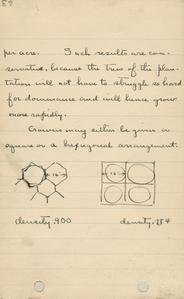 per acre. Such results are con-
servative, because the trees of the plan-
tation will not have to struggle so hard
for dominance and will hence grow
more rapidly.
Crowns may either be given a
square or a hexagonal arrangement.
density .900
density .784